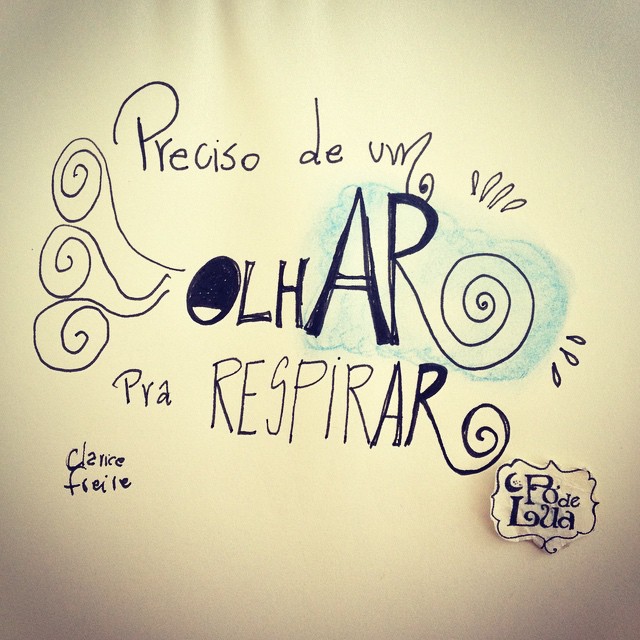 Preciso de um
OLHAR
Pra RESPIRAR
Clarice
freire
Pó de
Lua